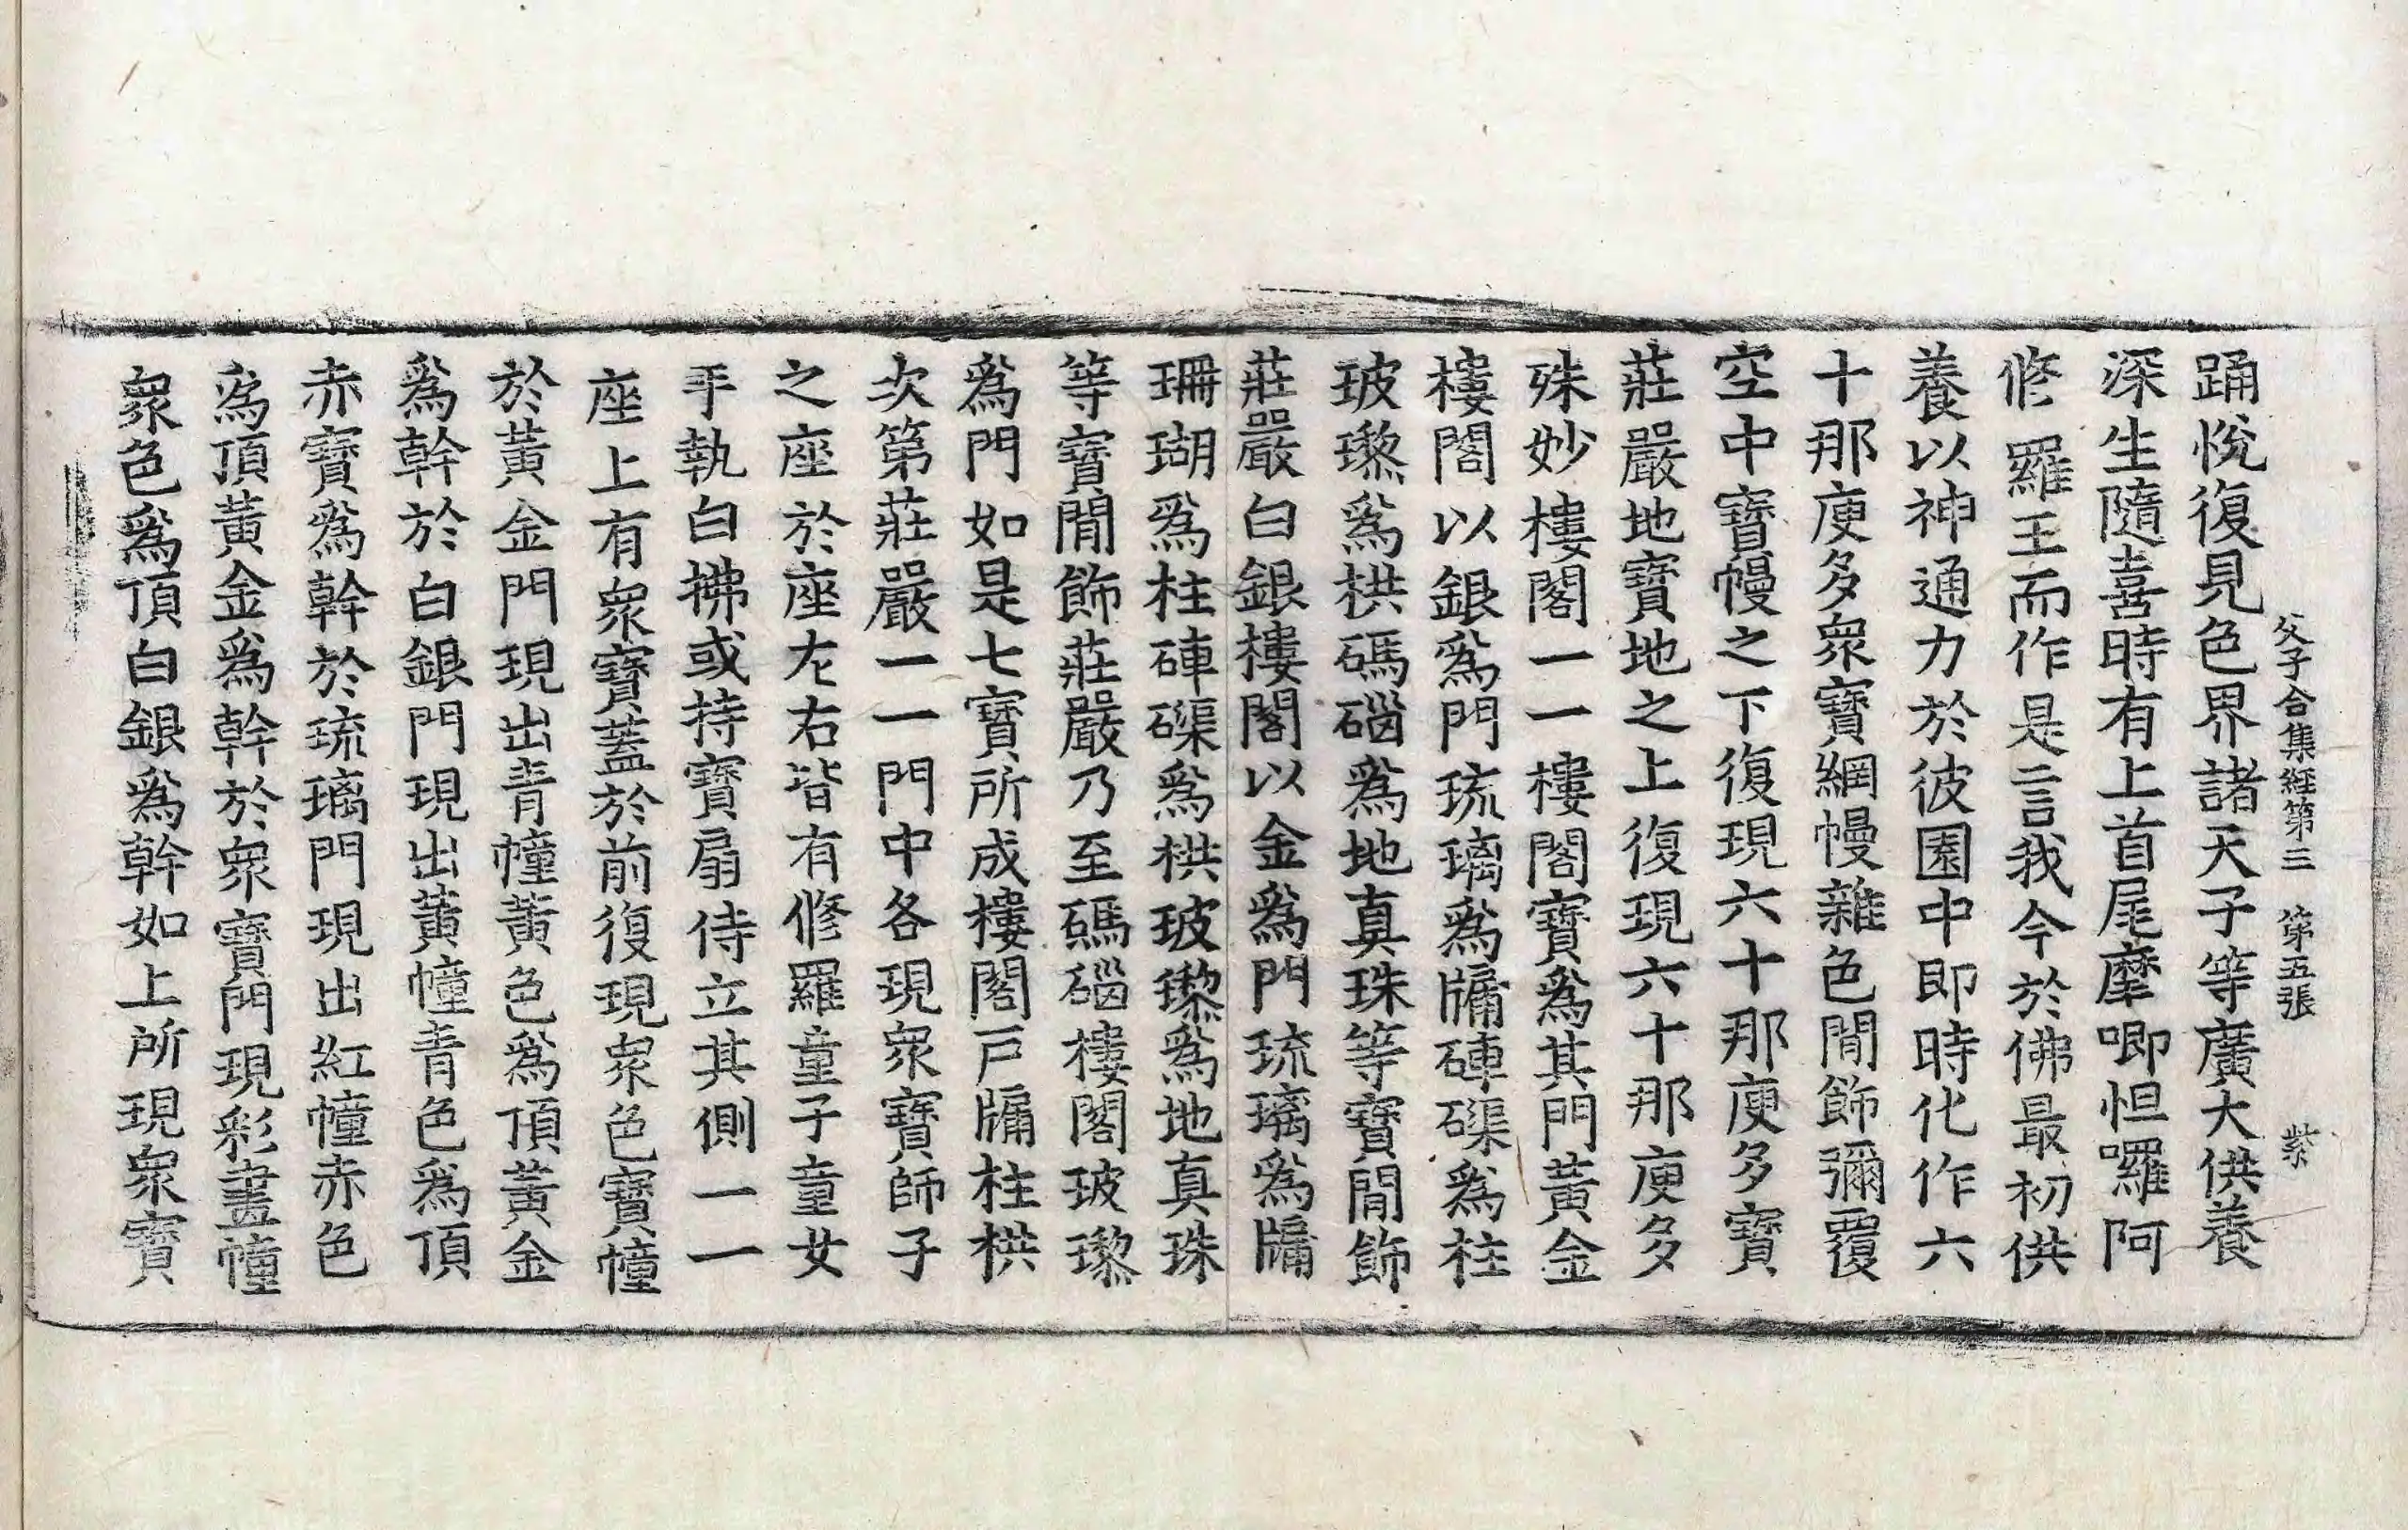 父子合集經第三 第五張 紫
踊悅復見色界諸天子等廣大供養
深生隨喜時有上首尾摩唧怛囉阿
修羅王而作是言我今於佛最初供
養以神通力於彼園中即時化作六
十那庾多衆寶網幔雜色閒飾彌覆
空中寶幔之下復現六十那庾多寶
莊嚴地寶地之上復現六十那庾多
殊妙樓閣一一樓閣寶爲其門黃金
樓閣以銀爲門琉璃爲牖硨磲爲柱
玻瓈爲栱碼碯爲地真珠等寶閒飾
莊嚴白銀樓閣以金爲門琉璃爲牖
珊瑚爲柱硨磲爲栱玻瓈爲地真珠
等寶閒飾莊嚴乃至碼碯樓閣玻瓈
爲門如是七寶所成樓閣戶牖柱栱
次第莊嚴一一門中各現衆寶師子
之座於座左右皆有修羅童子童女
手執白拂或持寶扇侍立其側一一
座上有衆寶蓋於前復現衆色寶幢
於黃金門現出青幢黃色爲頂黃金
爲幹於白銀門現出黃幢青色爲頂
赤寶爲幹於琉璃門現出紅幢赤色
爲頂黃金爲幹於衆寶門現彩畫幢
衆色爲頂白銀爲幹如上所現衆寶